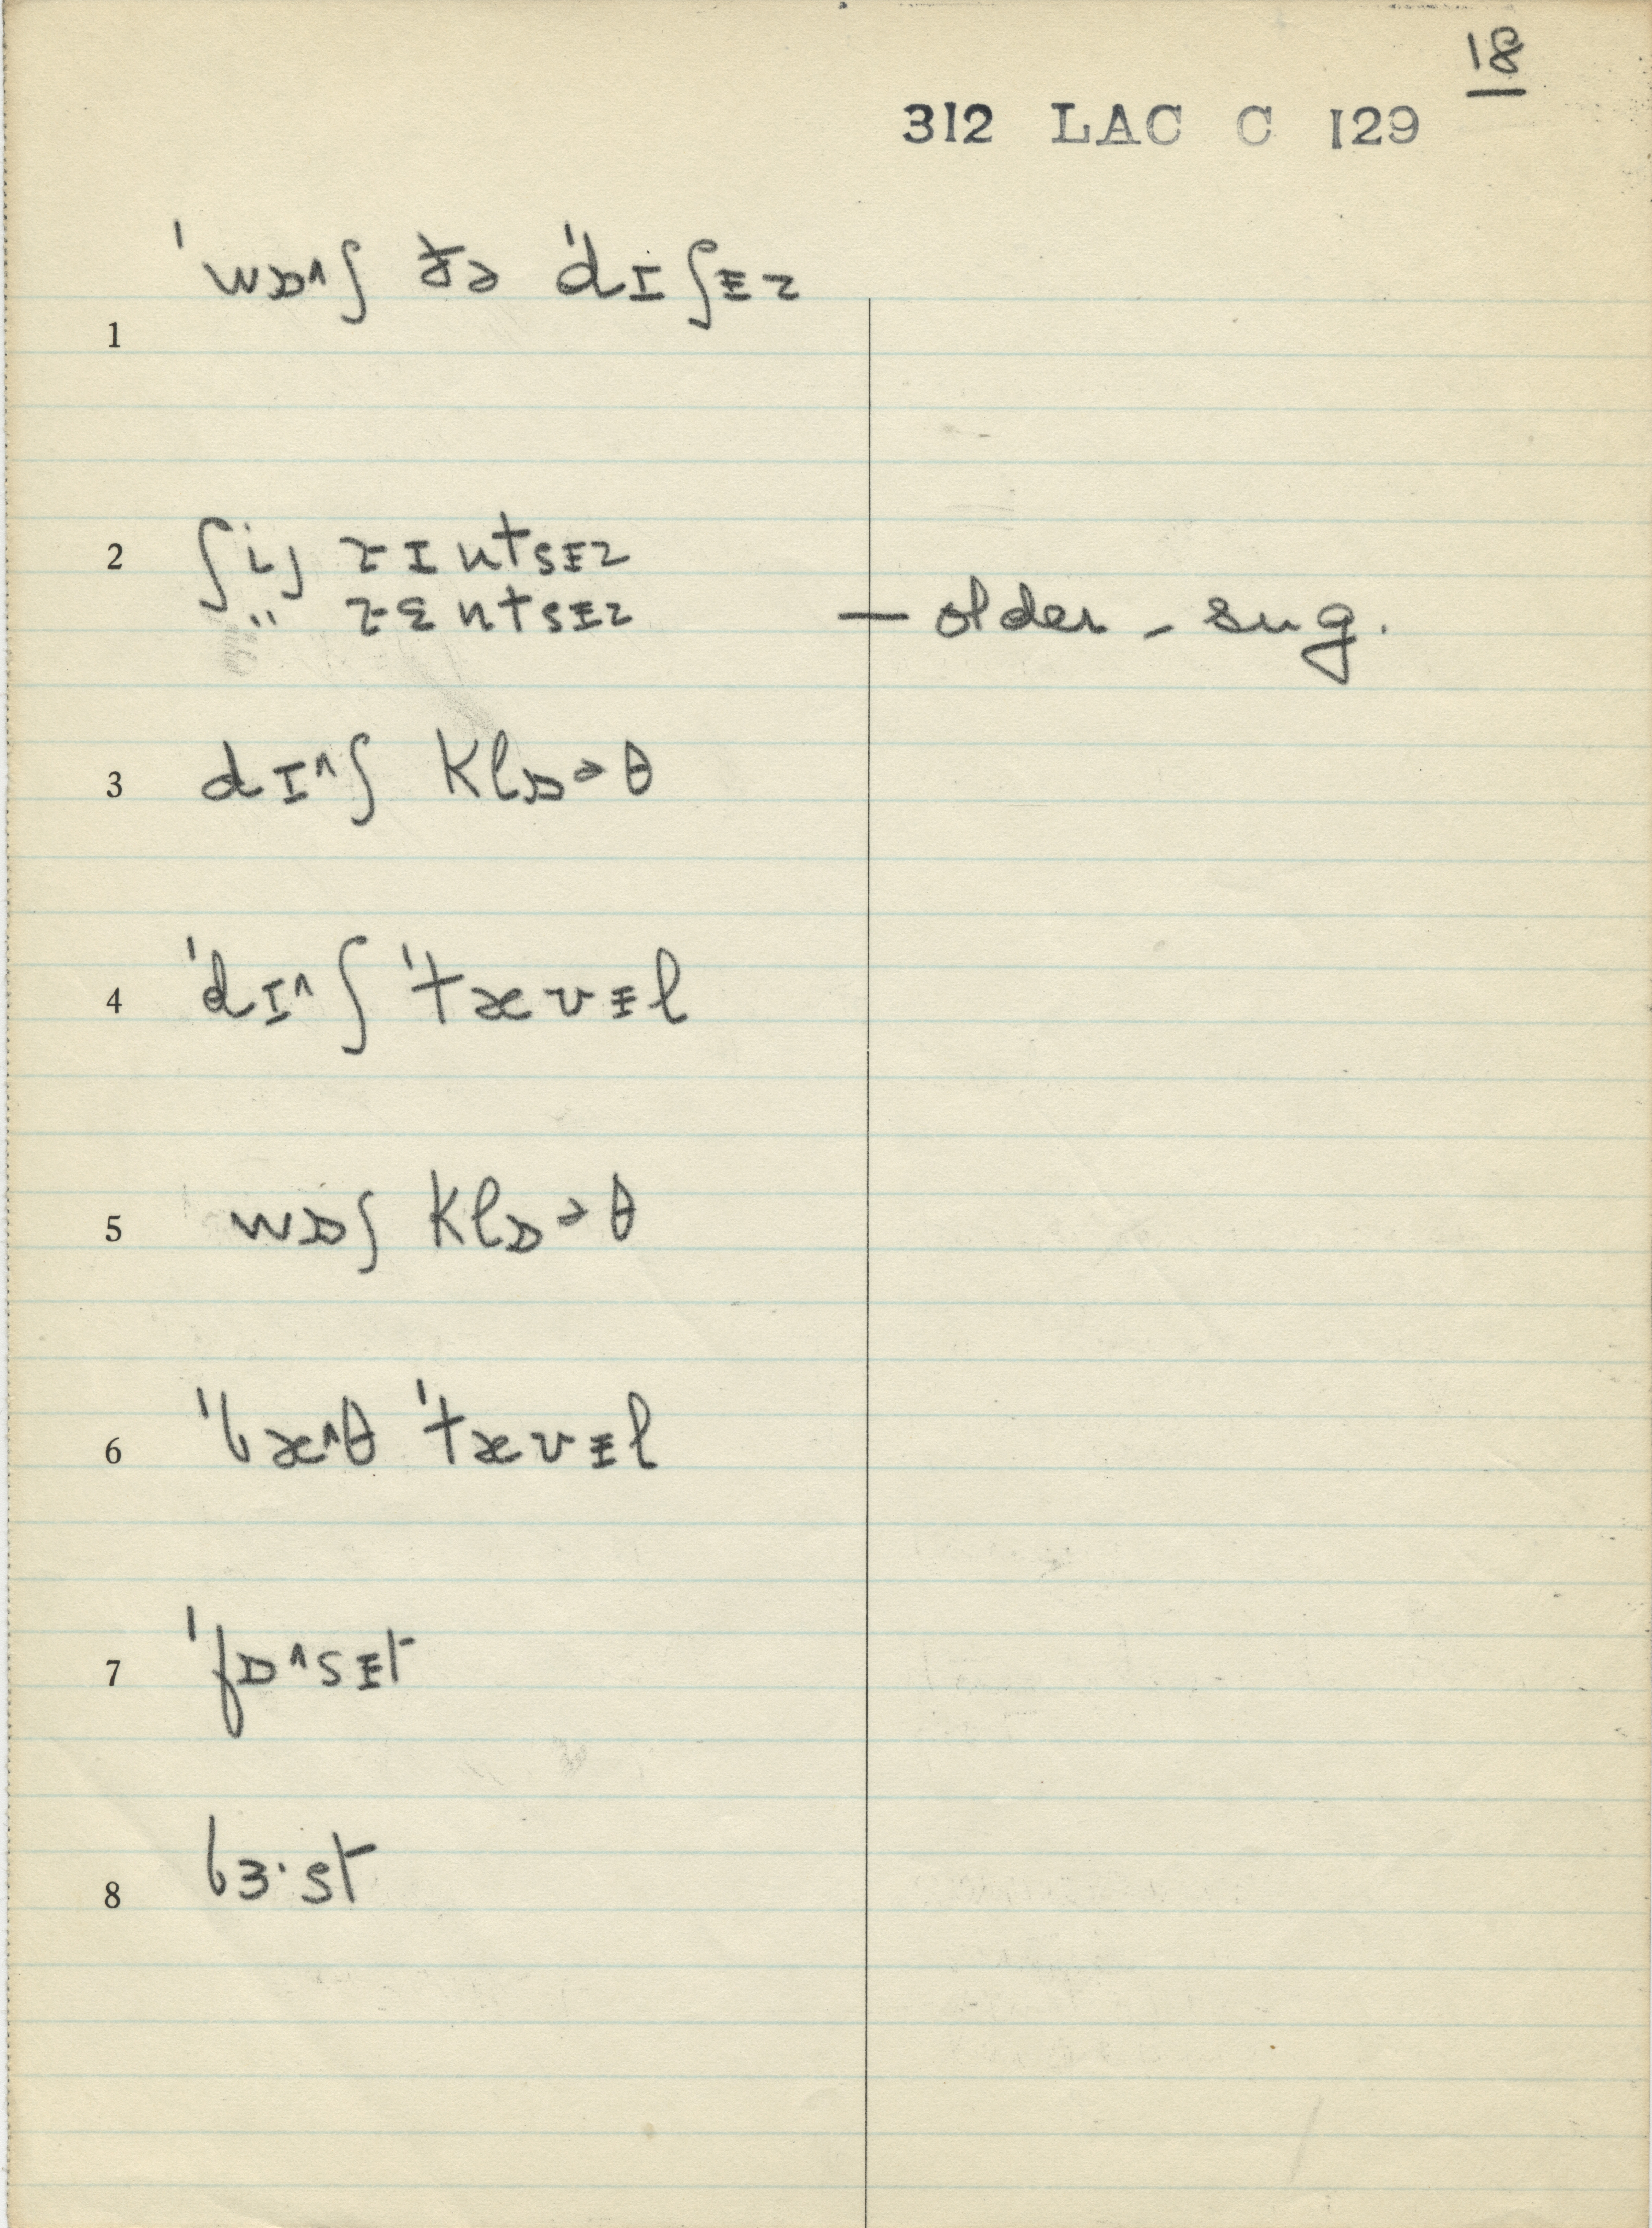 18
312 LAC C 129
1 ˈwɒ^ʃ ðə ˈdɪʃɪ̵z
2 ʃij rɪntsɪ̵z
" rɛntsɪ̵z — older - sug.
3 dɪ^ʃ klɒɔθ
4 ˈdɪ^ʃ ˈtævɪ̵l
5 wɒʃ klɒɔθ
6 ˈbæ^θ ˈtævɪ̵l
7 ˈfɒ^sɪ̵t
8 bɜ·st